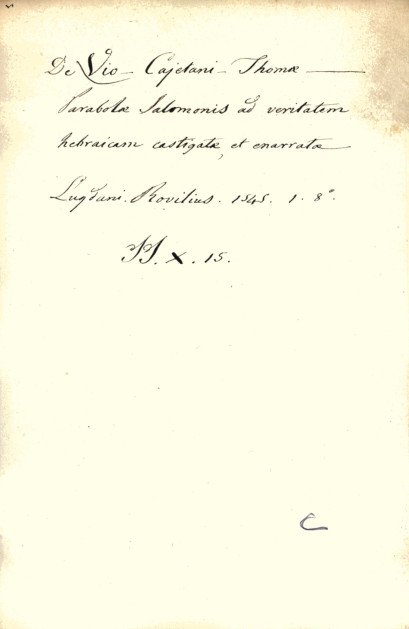 De Vio - Cajetani - Thomæ —
Parabolæ Salomonis ad veritatem
hebraicam castigatæ, et enarratæ
Lugduni. Rovilius. 1545. 1. 8°.
X. 15.
C